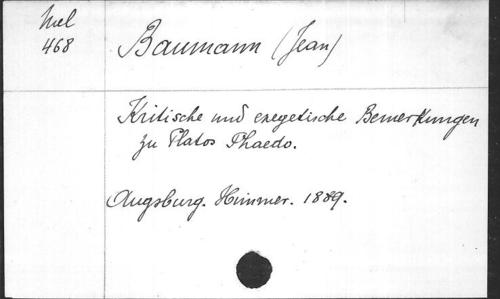 Mel
468
Baumann (Jean)
Kritische und exegetische Bemerkungen
zu Platos Phaedo.
Augsburg. Himmer. 1889.